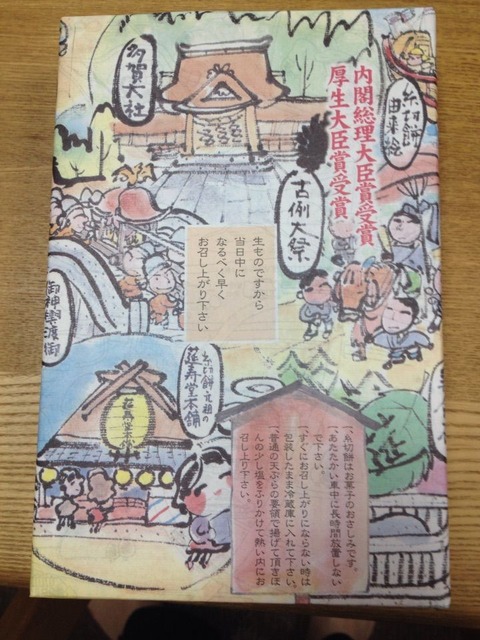 内閣総理大臣賞受賞
厚生大臣賞受賞
糸切餅
由来絵
多賀大社
古例大祭
生ものですから
当日中に
なるべく早く
お召し上がり下さい
御神輿渡御
糸切餅元祖の
延寿堂本舗
延寿堂本舗
一、糸切餅はお菓子のおさしみです。
一、あたたかい車中に長時間放置しない
で下さい。
一、すぐにお召し上がりにならない時は
包装したまま冷蔵庫に入れて下さい。
一、普通の天ぷらの要領で揚げて頂きほ
んの少し塩をふりかけて熱い内にお
召し上り下さい。